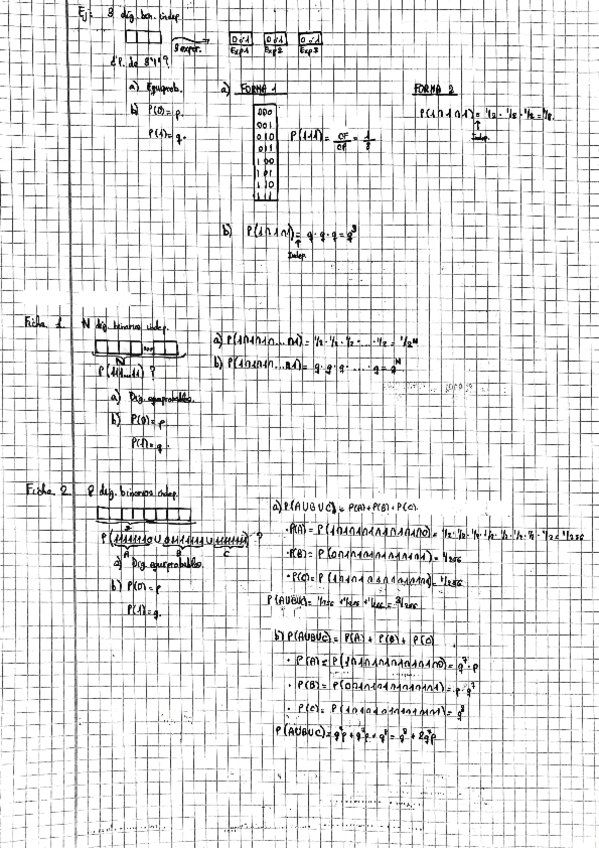 Ej: 3 díg. bin. indep.
3 exper.
0 ó 1 0 ó 1 0 ó 1
Exp1 Exp2 Exp3
¿P. de 3 "1"?
a) Equiprob.
b) P(0)=p.
P(1)=q.
a) FORMA 1
000
001
010
011
100
101
110
111
P(111) = CF/CP = 1/8
FORMA 2
P(1∩1∩1) = 1/2 · 1/2 · 1/2 = 1/8.
Indep.
b) P(1∩1∩1) = q·q·q = q³
Indep.
Ficha 1. N díg. binarios indep.
...
N
P(111...11) ?
a) Díg. equiprobables.
b) P(0)=p
P(1)=q.
a) P(1∩1∩1∩...∩1) = 1/2 · 1/2 · 1/2 · ... · 1/2 = 1/2ᴺ
b) P(1∩1∩1∩...∩1) = q·q·q· ... ·q = qᴺ
Ficha 2. 8 díg. binarios indep.
8
P(11111110 ∪ 01111111 ∪ 11111111) ?
A B C
a) Díg. equiprobables.
b) P(0)=p
P(1)=q.
a) P(A∪B∪C) = P(A)+P(B)+P(C).
·P(A) = P(1∩1∩1∩1∩1∩1∩1∩0) = 1/2 · 1/2 · 1/2 · 1/2 · 1/2 · 1/2 · 1/2 · 1/2 = 1/256
·P(B) = P(0∩1∩1∩1∩1∩1∩1∩1) = 1/256
·P(C) = P(1∩1∩1∩1∩1∩1∩1∩1) = 1/256
P(A∪B∪C) = 1/256 + 1/256 + 1/256 = 3/256
b) P(A∪B∪C) = P(A) + P(B) + P(C)
· P(A) = P(1∩1∩1∩1∩1∩1∩1∩0) = q⁷·p
· P(B) = P(0∩1∩1∩1∩1∩1∩1∩1) = p·q⁷
· P(C) = P(1∩1∩1∩1∩1∩1∩1∩1) = q⁸
P(A∪B∪C) = q⁷p + q⁷p + q⁸ = q⁸ + 2q⁷p